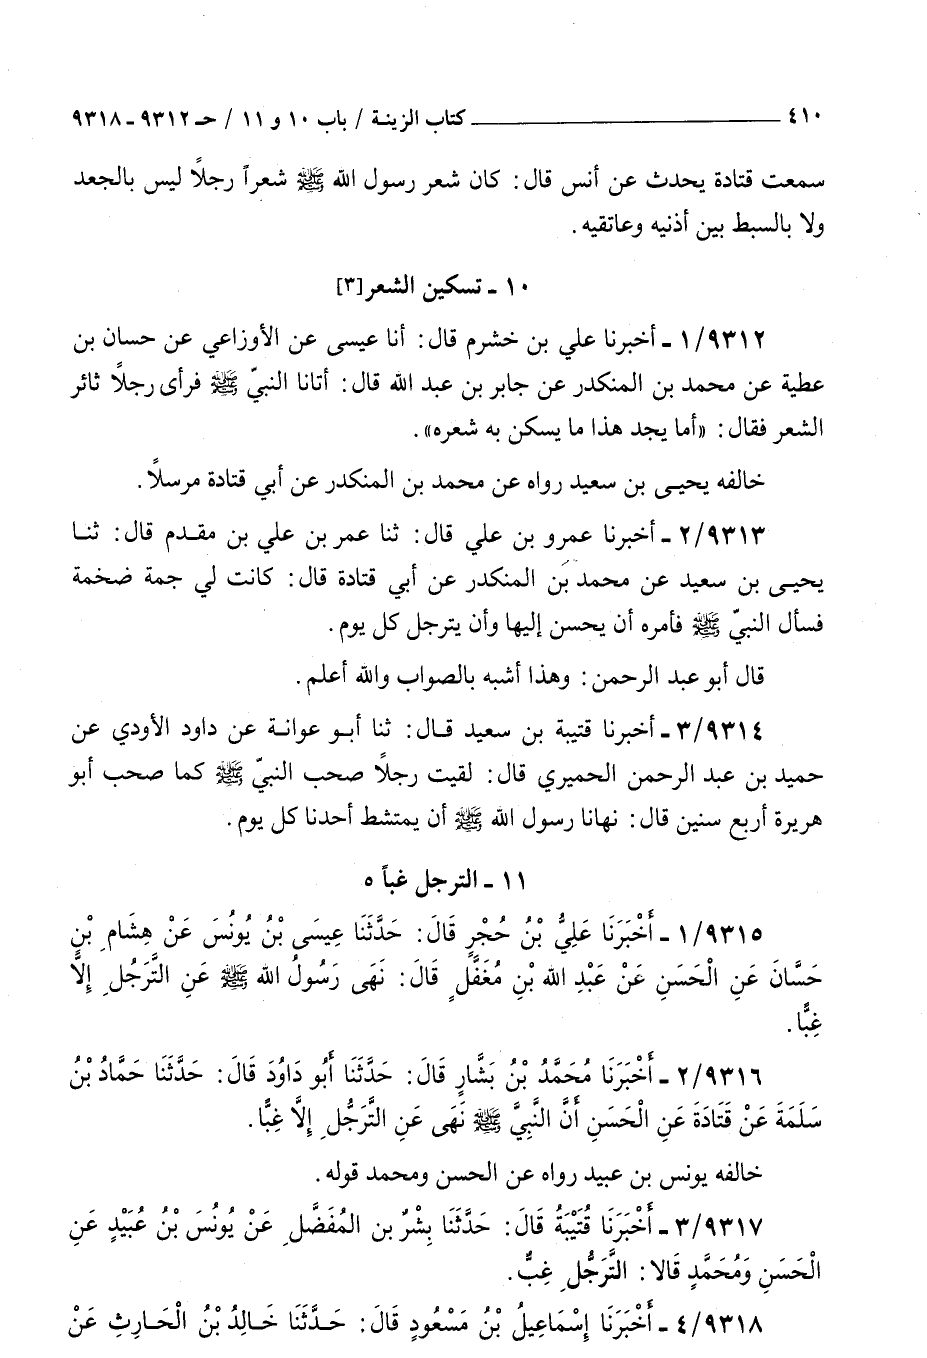 ٤١٠ ـــــــــــــــــ كتاب الزينة / باب ١٠ و ١١ / حـ ٩٣١٢ ـ ٩٣١٨
سمعت قتادة يحدث عن أنس قال: كان شعر رسول الله ﷺ شعراً رجلاً ليس بالجعد
ولا بالسبط بين أذنيه وعاتقيه.
١٠ ـ تسكين الشعر[٣]
١/٩٣١٢ ـ أخبرنا علي بن خشرم قال: أنا عيسى عن الأوزاعي عن حسان بن
عطية عن محمد بن المنكدر عن جابر بن عبد الله قال: أتانا النبيّ ﷺ فرأى رجلاً ثائر
الشعر فقال: «أما يجد هذا ما يسكن به شعره».
خالفه يحيى بن سعيد رواه عن محمد بن المنكدر عن أبي قتادة مرسلاً.
٢/٩٣١٣ ـ أخبرنا عمرو بن علي قال: ثنا عمر بن علي بن مقدم قال: ثنا
يحيى بن سعيد عن محمد بن المنكدر عن أبي قتادة قال: كانت لي جمة ضخمة
فسأل النبيّ ﷺ فأمره أن يحسن إليها وأن يترجل كل يوم.
قال أبو عبد الرحمن: وهذا أشبه بالصواب والله أعلم.
٣/٩٣١٤ ـ أخبرنا قتيبة بن سعيد قال: ثنا أبو عوانة عن داود الأودي عن
حميد بن عبد الرحمن الحميري قال: لقيت رجلاً صحب النبيّ ﷺ كما صحب أبو
هريرة أربع سنين قال: نهانا رسول الله ﷺ أن يمتشط أحدنا كل يوم.
١١ ـ الترجل غباً ٥
١/٩٣١٥ ـ أَخْبَرَنَا عَلِيُّ بْنُ حُجْرٍ قَالَ: حَدَّثَنَا عِيسَى بْنُ يُونُسَ عَنْ هِشَامِ بْنِ
حَسَّانَ عَنِ الْحَسَنِ عَنْ عَبْدِ الله بْنِ مُغَفَّلٍ قَالَ: نَهَى رَسُولُ الله ﷺ عَنِ التَّرَجُلِ إِلَّا
غِبًّا.
٢/٩٣١٦ ـ أَخْبَرَنَا مُحَمَّدُ بْنُ بَشَّارٍ قَالَ: حَدَّثَنَا أَبُو دَاوُدَ قَالَ: حَدَّثَنَا حَمَّادُ بْنُ
سَلَمَةَ عَنْ قَتَادَةَ عَنِ الْحَسَنِ أَنَّ النَّبِيَّ ﷺ نَهَى عَنِ التَّرَجُّلِ إِلَّا غِبًّا.
خالفه يونس بن عبيد رواه عن الحسن ومحمد قوله.
٣/٩٣١٧ ـ أَخْبَرَنَا قُتَيْبَةُ قَالَ: حَدَّثَنَا بِشْرُ بن المُفَضَّلِ عَنْ يُونُسَ بْنُ عُبَيْدٍ عَنِ
الْحَسَنِ وَمُحَمَّدٍ قَالا: التَّرَجُّلِ غِبٌّ.
٤/٩٣١٨ ـ أَخْبَرَنَا إِسْمَاعِيلُ بْنُ مَسْعُودٍ قَالَ: حَدَّثَنَا خَالِدُ بْنُ الْحَارِثِ عَنْ